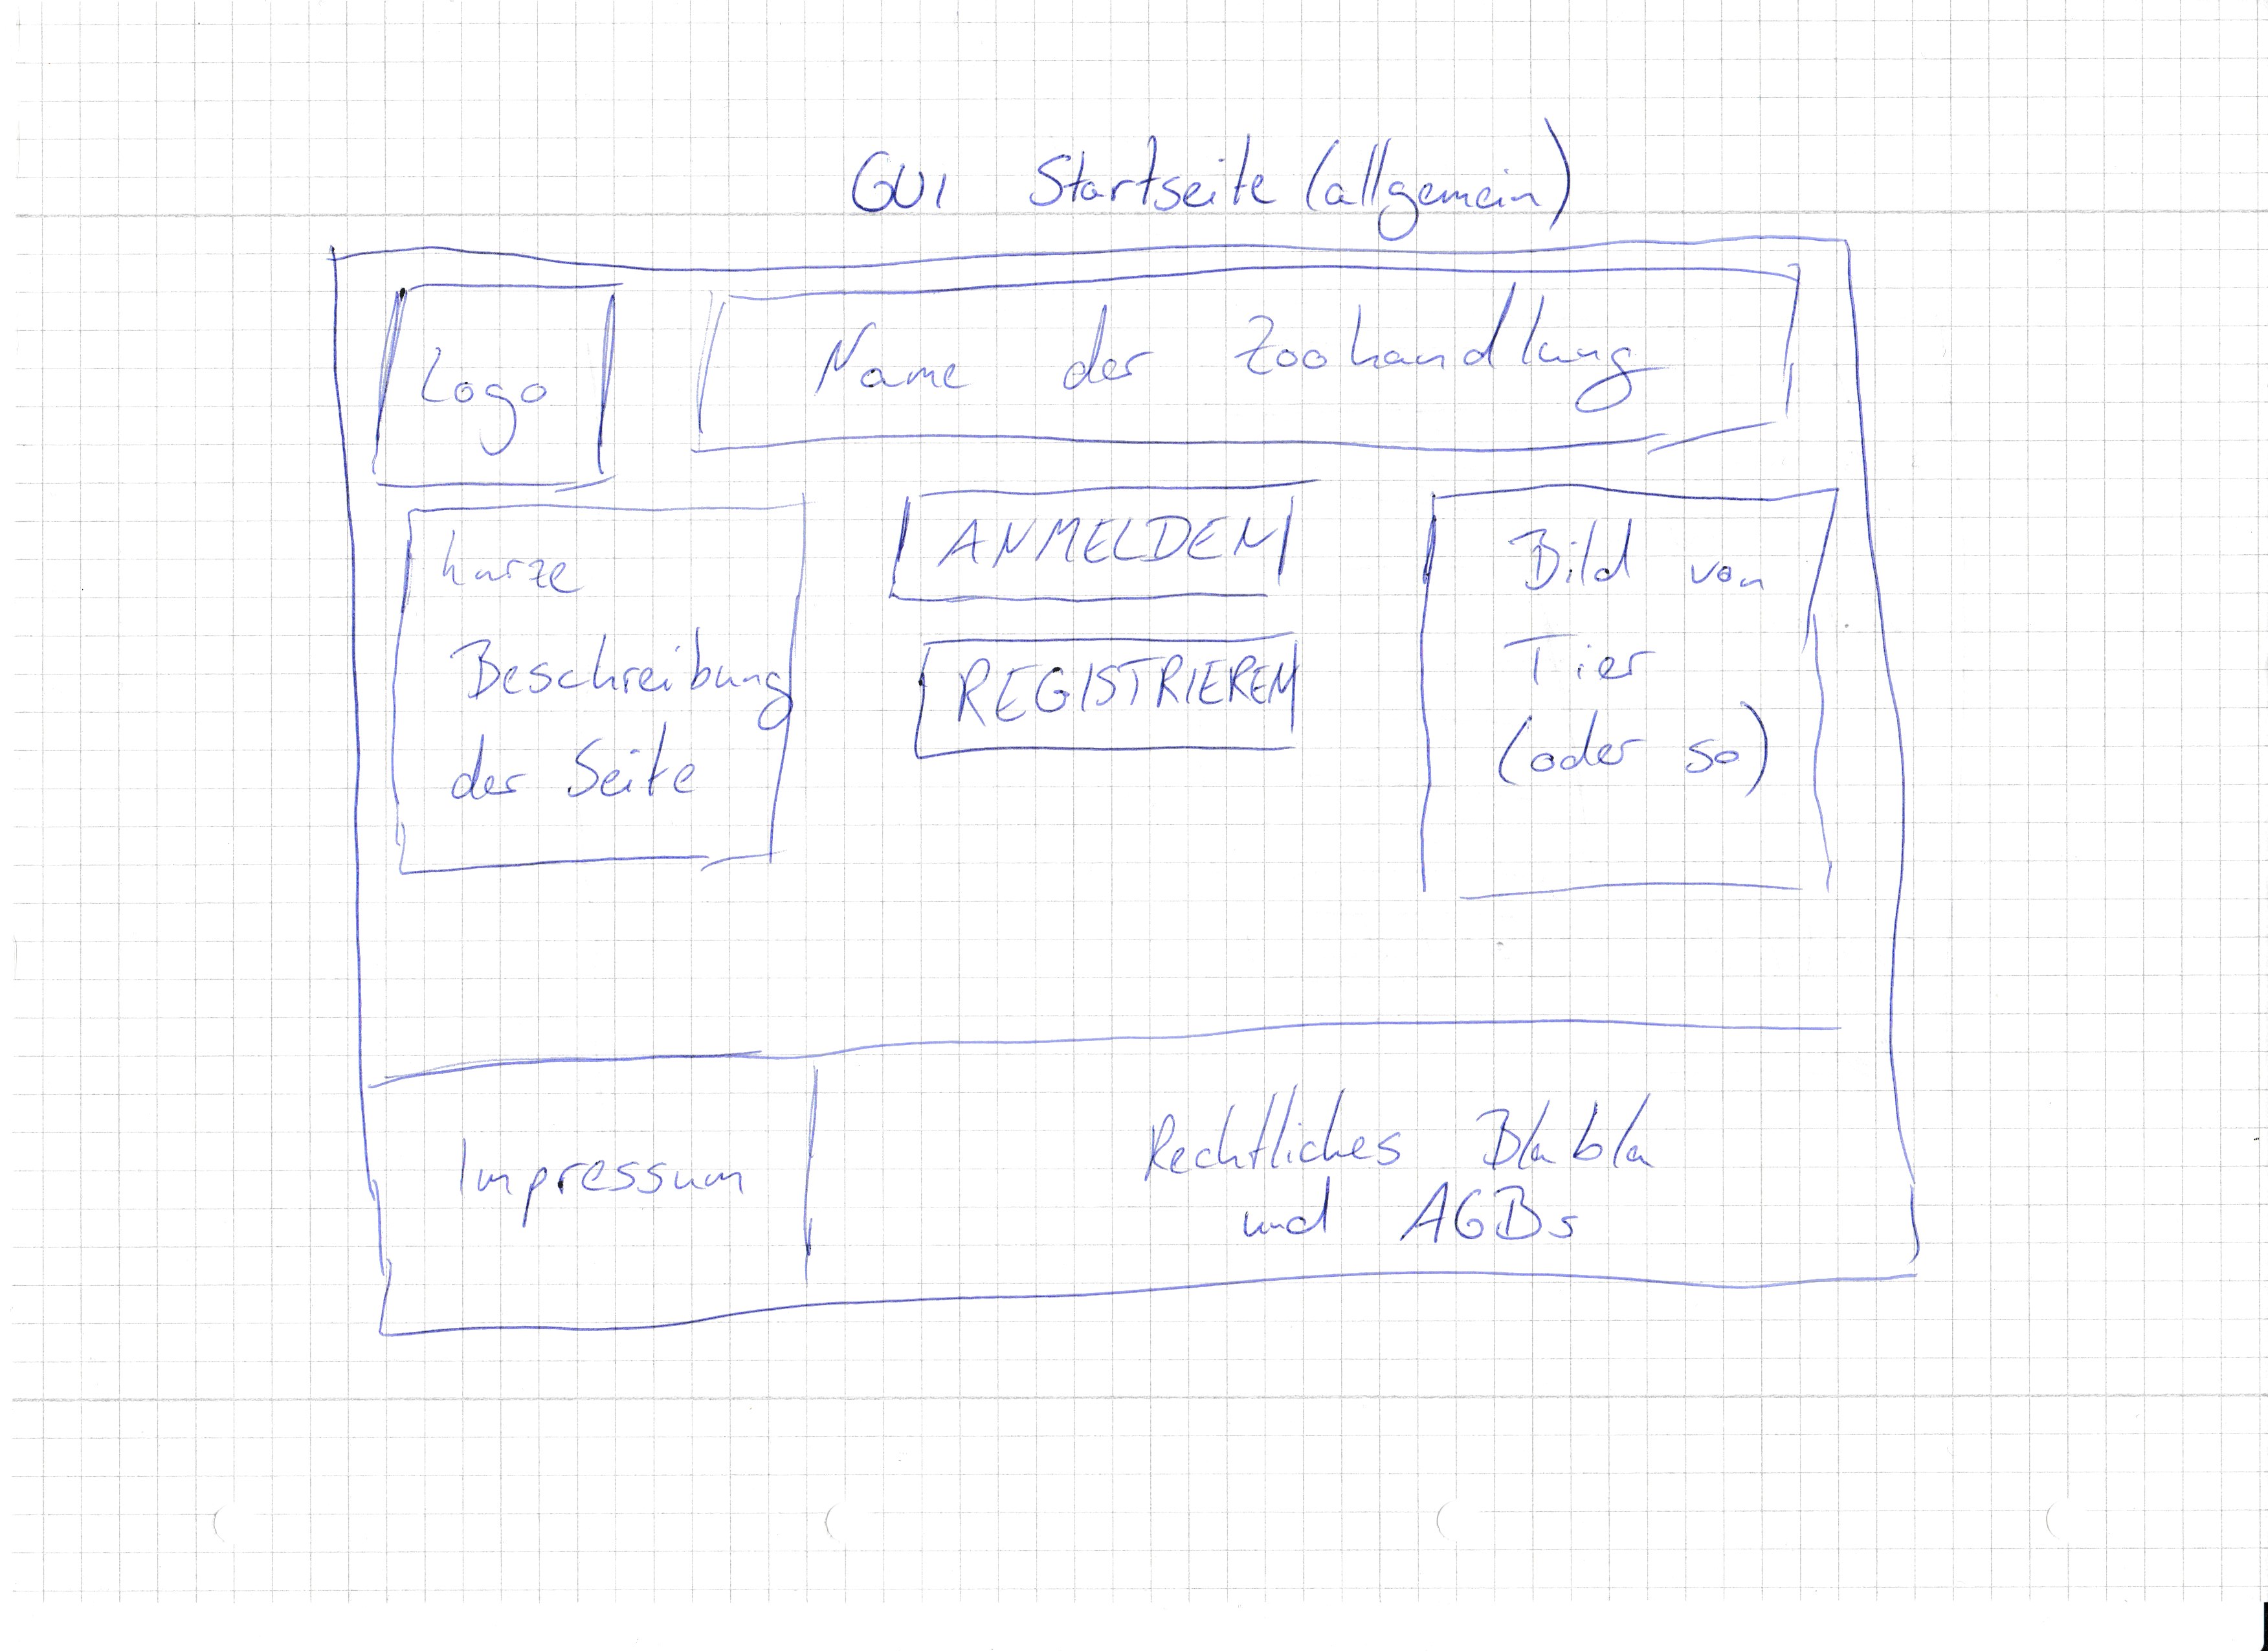 GUI Startseite (allgemein)
Logo
Name der Zoohandlung
kurze
Beschreibung
der Seite
ANMELDEN
REGISTRIEREN
Bild von
Tier
(oder so)
Impressum
Rechtliches Blabla
und AGBs